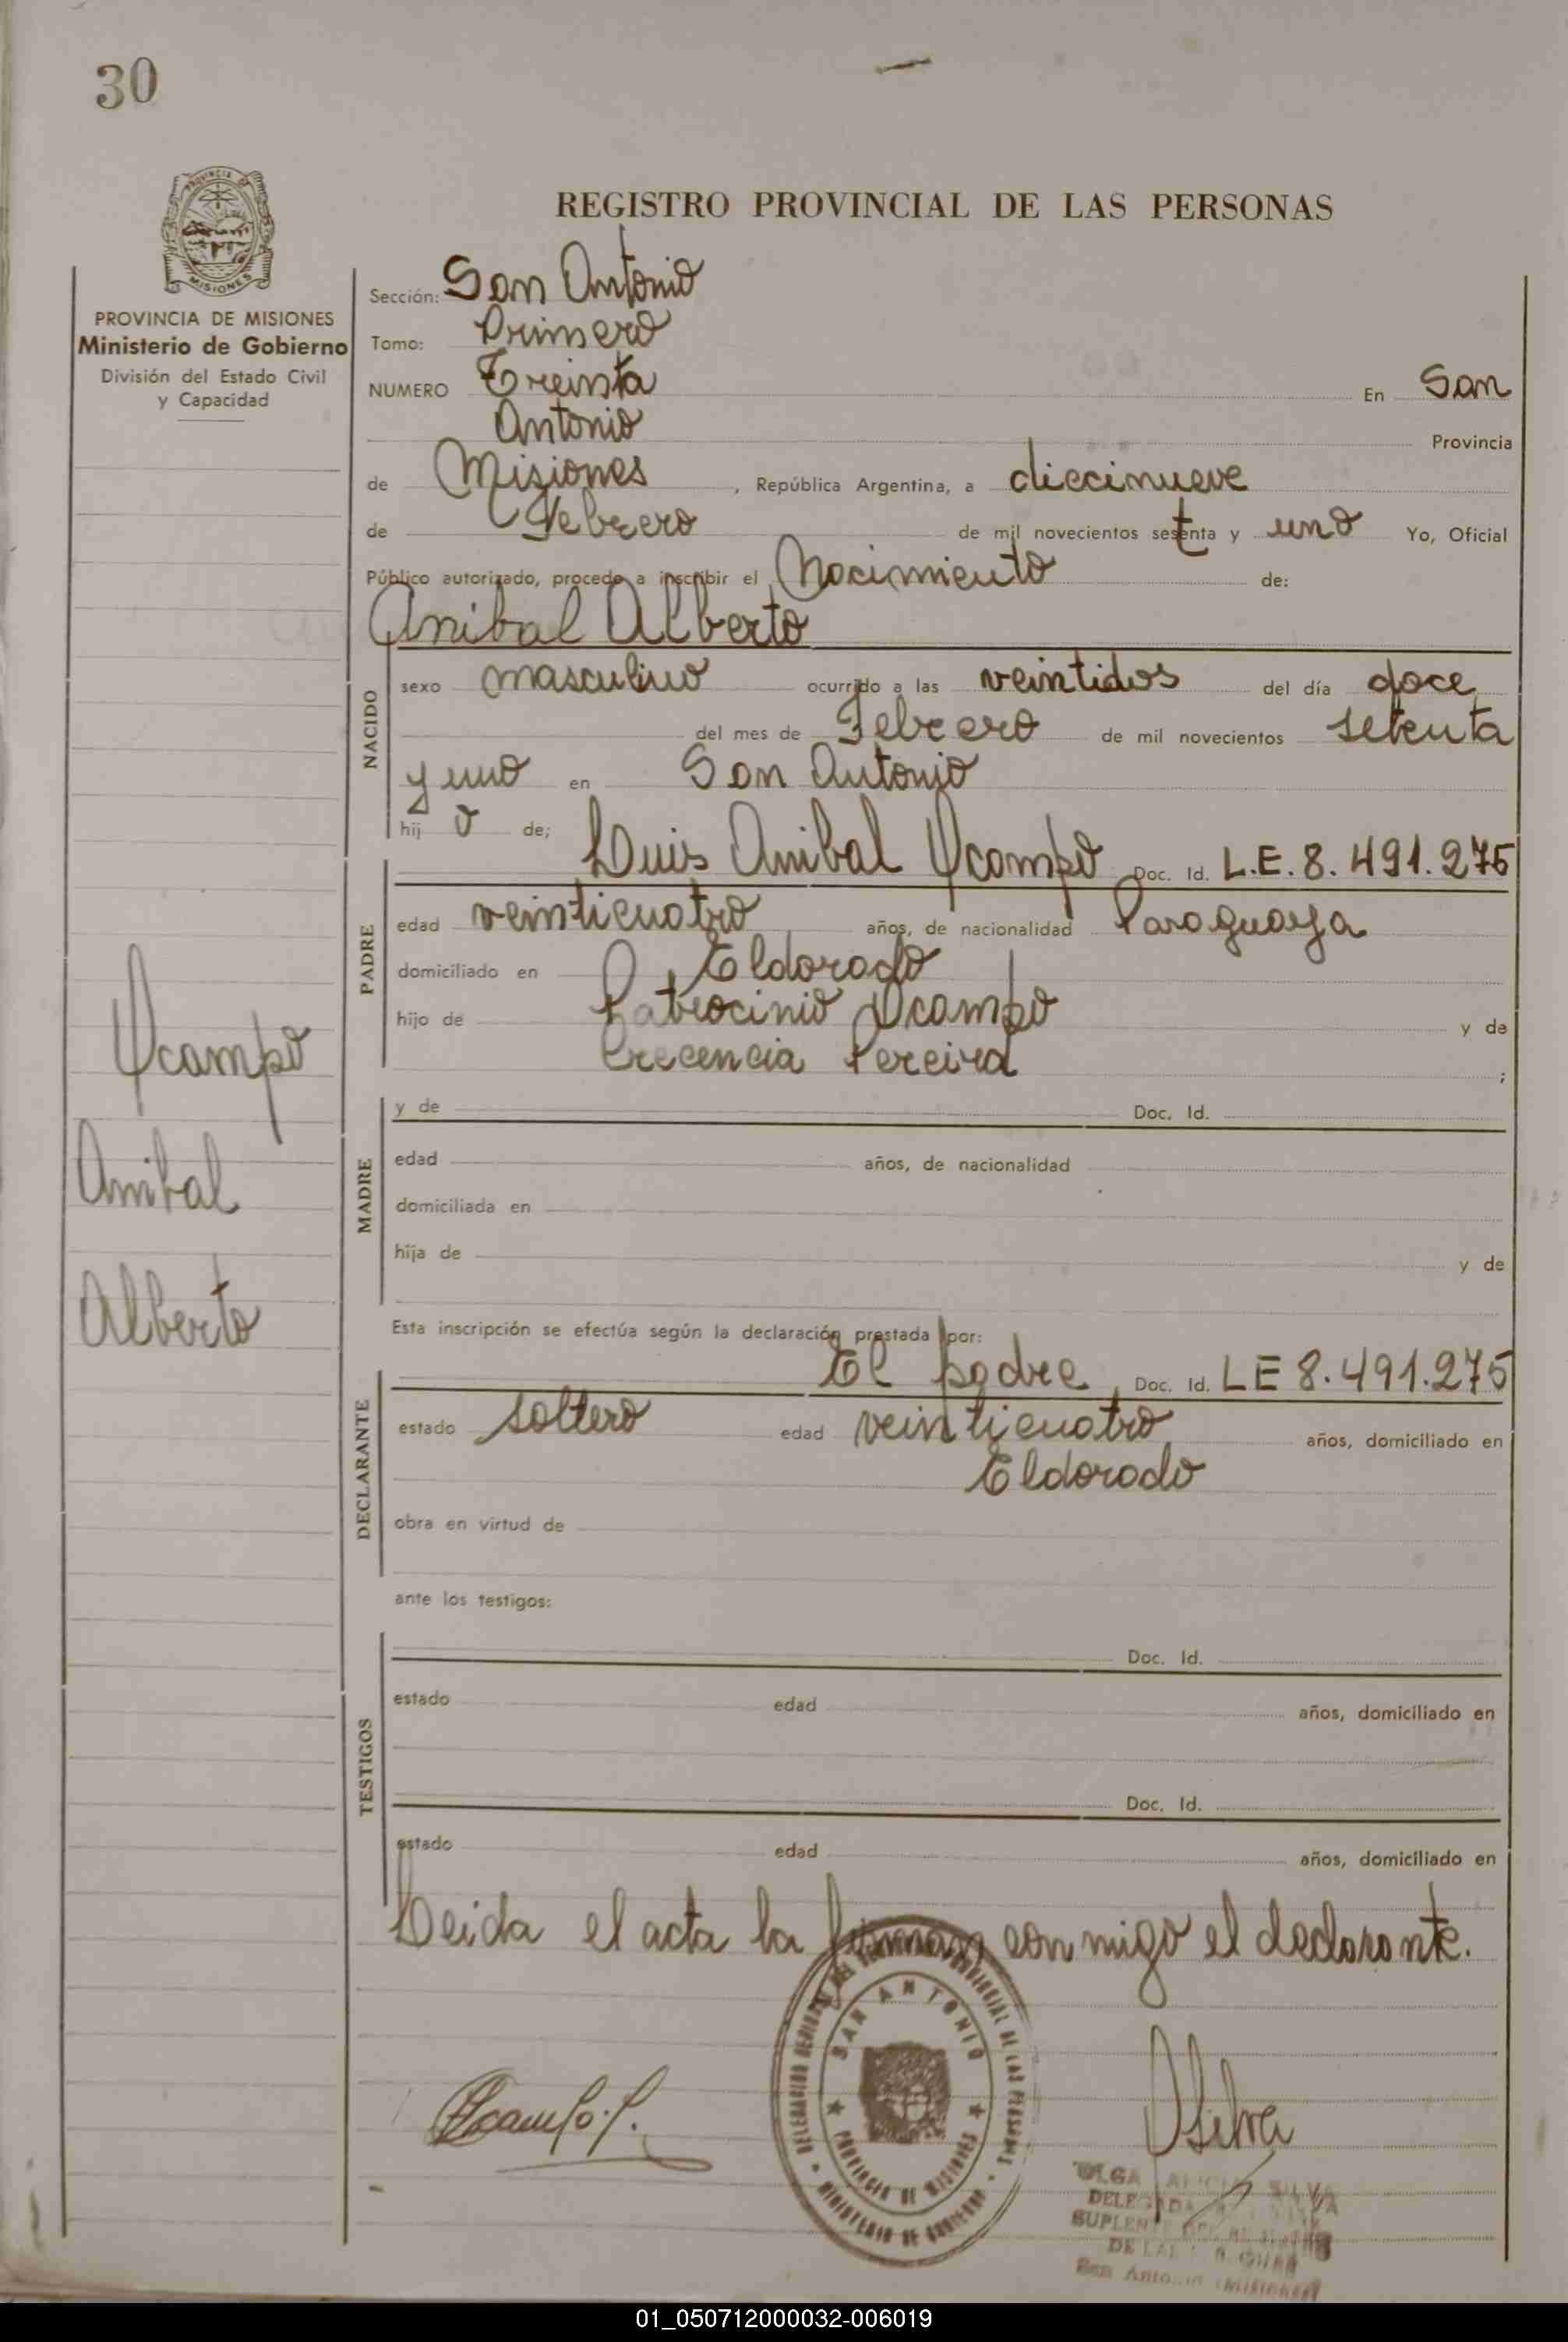 30
REGISTRO PROVINCIAL DE LAS PERSONAS
PROVINCIA DE MISIONES
Ministerio de Gobierno
División del Estado Civil
y Capacidad
Sección: San Antonio
Tomo: Primero
NUMERO Treinta En San
Antonio Provincia
de Misiones, República Argentina, a diecinueve
de Febrero de mil novecientos setenta y uno Yo, Oficial
Público autorizado, procedo a inscribir el Nacimiento de:
Anibal Alberto
NACIDO
sexo masculino ocurrido a las veintidos del día doce
del mes de Febrero de mil novecientos setenta
y uno en San Antonio
hij o de; Luis Anibal Ocampo Doc. Id. L.E. 8.491.275
PADRE
edad veinticuatro años, de nacionalidad Paraguaya
domiciliado en Eldorado
hijo de Patrocinio Ocampo y de
Crecencia Pereira ;
Ocampo
Anibal
Alberto
MADRE
y de Doc. Id.
edad años, de nacionalidad
domiciliada en
hija de y de
Esta inscripción se efectúa según la declaración prestada por:
El padre, Doc. Id. LE 8.491.275
DECLARANTE
estado soltero edad veinticuatro años, domiciliado en
Eldorado
obra en virtud de
ante los testigos:
TESTIGOS
Doc. Id.
estado edad años, domiciliado en
Doc. Id.
estado edad años, domiciliado en
Leida el acta la firman conmigo el declarante.
SAN ANTONIO
PROVINCIA DE MISIONES
MINISTERIO DE GOBIERNO
PROVINCIAL DE LAS PERSONAS
OSilva
OLGA ALICIA SILVA
DELEGADA
SUPLENTE
San Antonio (Misiones)
01_050712000032-006019